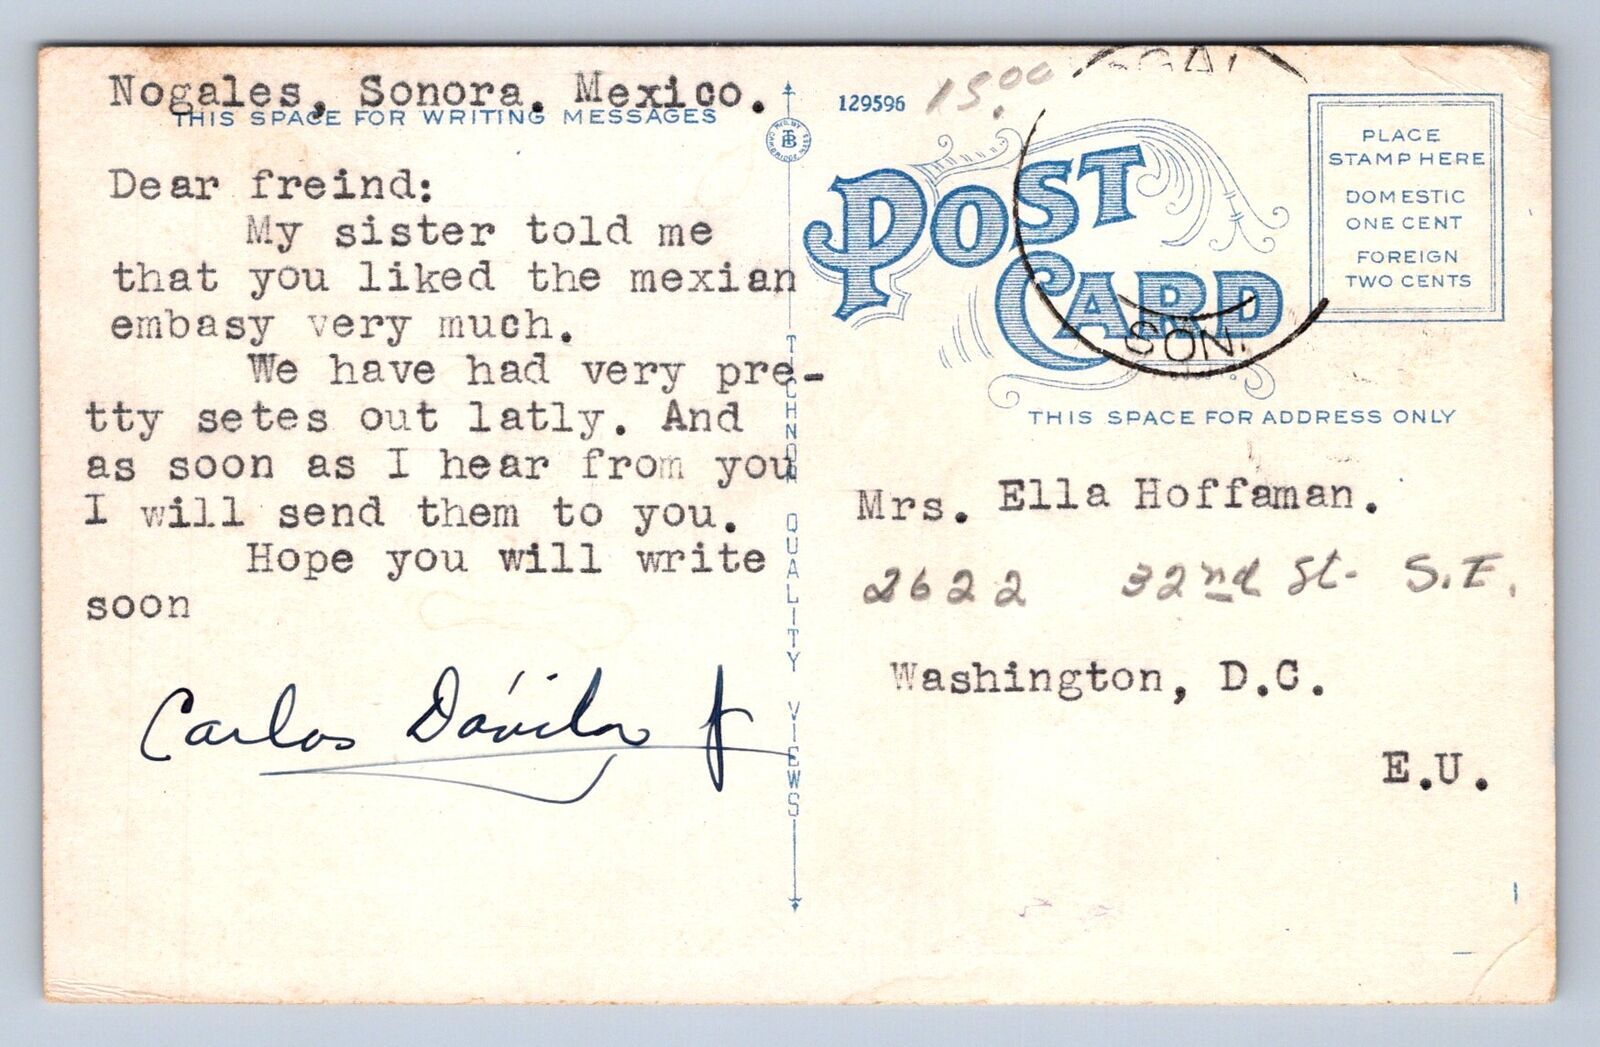 Nogales, Sonora. Mexico.
THIS SPACE FOR WRITING MESSAGES
Dear freind:
My sister told me
that you liked the mexian
embasy very much.
We have had very pre-
tty setes out latly. And
as soon as I hear from you
I will send them to you.
Hope you will write
soon
Carlos Dávila Jr
TICHNOR QUALITY VIEWS
129596
15.00
POST CARD
SON.
PLACE
STAMP HERE
DOMESTIC
ONE CENT
FOREIGN
TWO CENTS
THIS SPACE FOR ADDRESS ONLY
Mrs. Ella Hoffaman.
2622 32nd St- S.E.
Washington, D.C.
E.U.